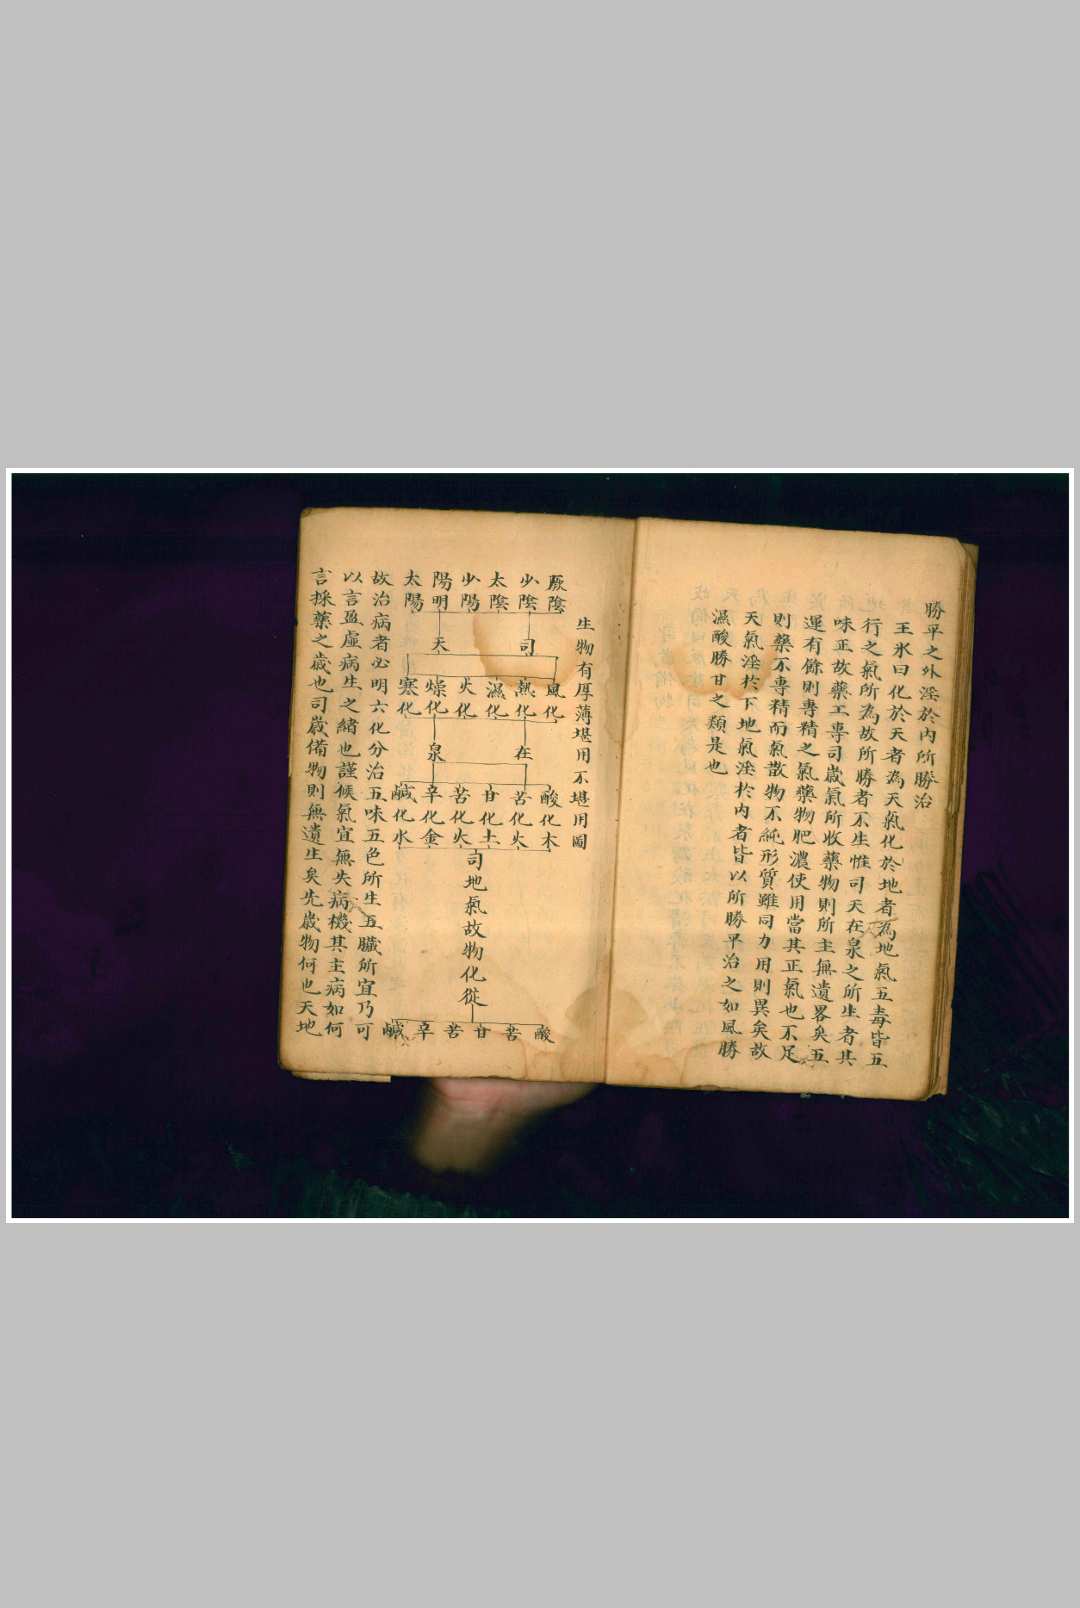 勝平之外淫於内所勝治
王氷曰化於天者為天氣化於地者為地氣五毒皆五
行之氣所為故所勝者不生惟司天在泉之所生者其
味正故藥工專司歲氣所收藥物則所主無遺畧矣五
運有餘則專精之氣藥物肥濃使用當其正氣也不足
則藥不專精而氣散物不純形質雖同力用則異矣故
天氣淫於下地氣淫於内者皆以所勝平治之如風勝
濕酸勝甘之類是也
生物有厚薄堪用不堪用圖
厥陰 少陰 太陰 少陽 陽明 太陽
司 天
風化 熱化 濕化 火化 燥化 寒化
在 泉
酸化木 苦化火 甘化土 苦化火 辛化金 鹹化水
司地氣故物化從
酸 苦 甘 苦 辛 鹹
故治病者必明六化分治五味五色所生五臟所宜乃可
以言盈虛病生之緒也謹候氣宜無失病機其主病如何
言採藥之歲也司歲備物則無遺生矣先歲物何也天地